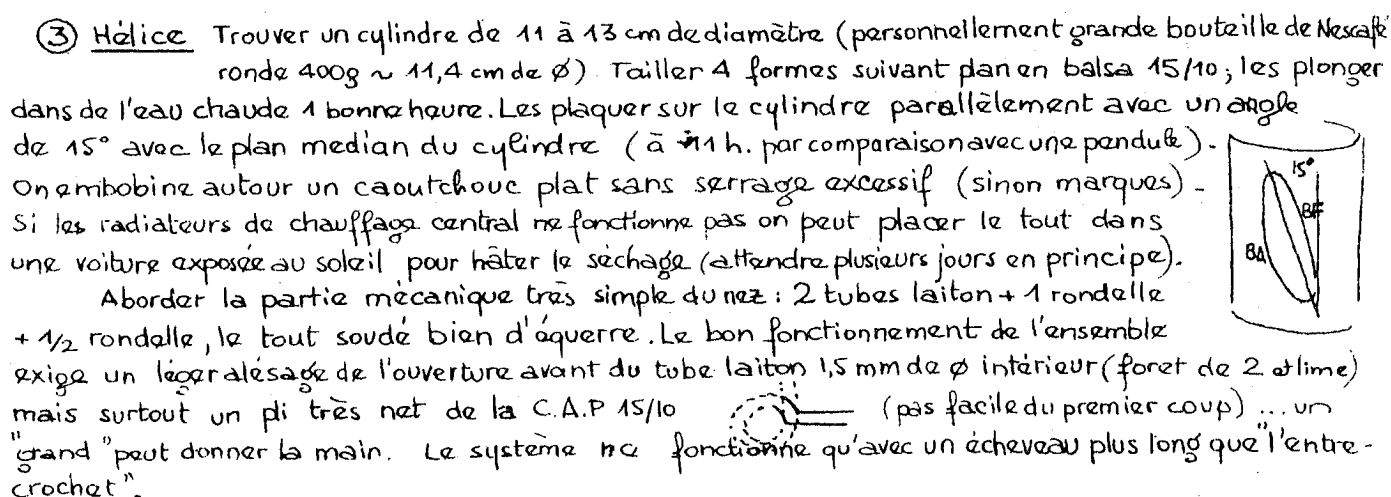 ③ Hélice Trouver un cylindre de 11 à 13 cm de diamètre (personnellement grande bouteille de Nescafé
ronde 400g ~ 11,4 cm de ø) Tailler 4 formes suivant plan en balsa 15/10; les plonger
dans de l'eau chaude 1 bonne heure. Les plaquer sur le cylindre parallèlement avec un angle
de 15° avec le plan median du cylindre (à 11 h. par comparaison avec une pendule).
On embobine autour un caoutchouc plat sans serrage excessif (sinon marques) -
Si les radiateurs de chauffage central ne fonctionne pas on peut placer le tout dans
une voiture exposée au soleil pour hâter le séchage (attendre plusieurs jours en principe).
15°
BF
BA
Aborder la partie mécanique très simple du nez : 2 tubes laiton + 1 rondelle
+ 1/2 rondelle, le tout soudé bien d'équerre. Le bon fonctionnement de l'ensemble
exige un léger alésage de l'ouverture avant du tube laiton 1,5 mm de ø intérieur (foret de 2 et lime)
mais surtout un pli très net de la C.A.P 15/10 (pas facile du premier coup) ... un
"grand" peut donner la main. Le système ne fonctionne qu'avec un écheveau plus long que "l'entre-
crochet".